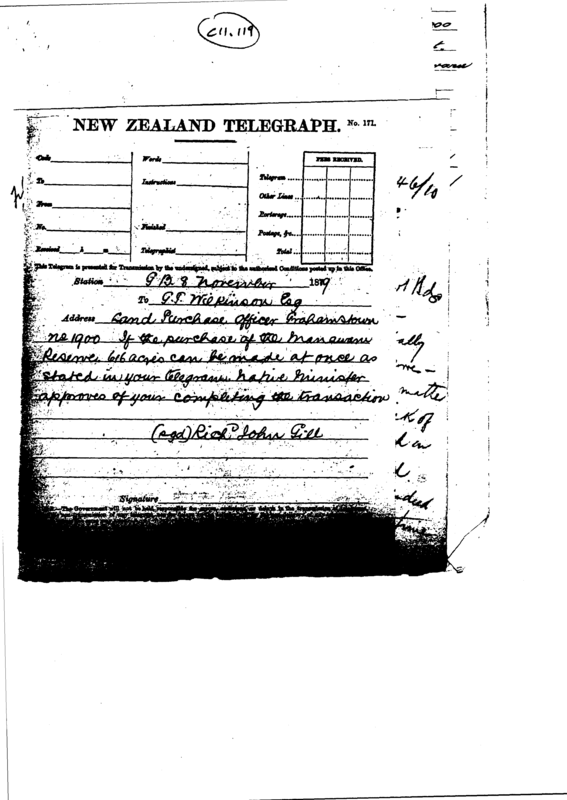 C11.119
00
t.
NEW ZEALAND TELEGRAPH. No. 171.
Code
Words
FEES RECEIVED.
To
Instructions
Telegram
Other Lines
From
Porterage
No.
Finished
Postage, &c.
Received h. m.
Telegraphist
Total
46/10
This Telegram is presented for Transmission by the undersigned, subject to the authorised Conditions posted up in this Office.
Station G B 8 November 1879
To G.T. Wilkinson Esq
Address Land Purchase Officer Grahamstown
no 1900 If the purchase of the
Reserve, 616 acres can be made at once as
stated in your telegram Native Minister
approves of your completing the transaction
(sgd) Richd John Gill
ally
matte
k of
d in
d.
Signature
The Government will not be held responsible for